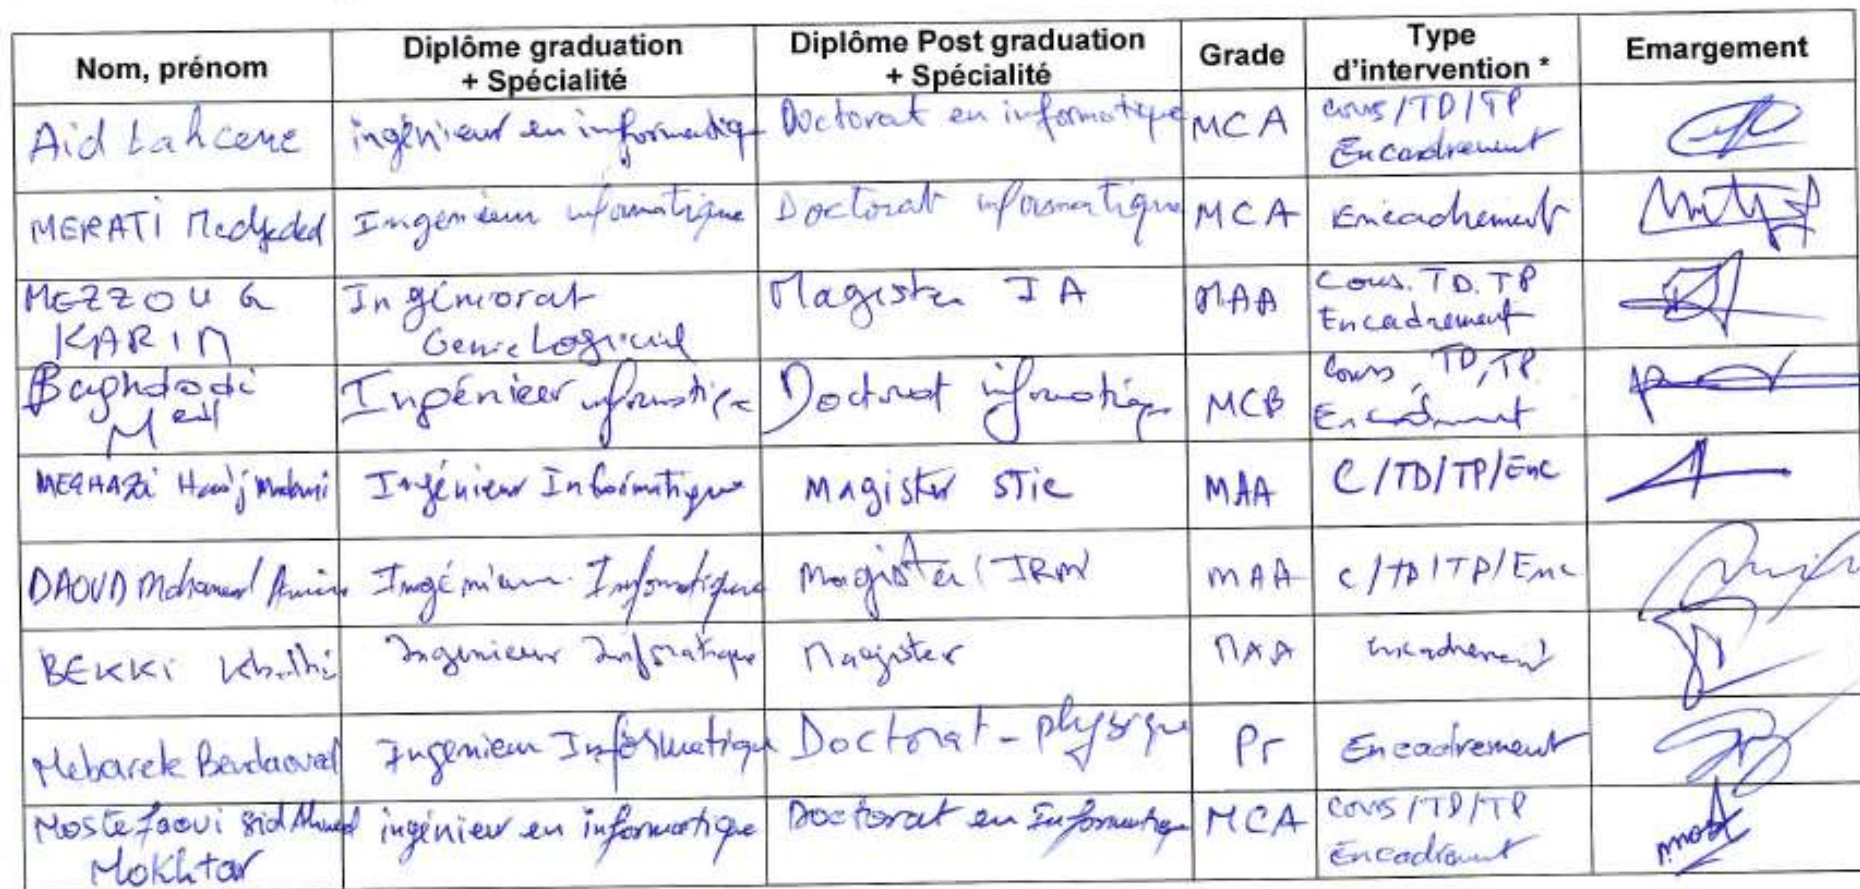 Nom, prénom | Diplôme graduation + Spécialité | Diplôme Post graduation + Spécialité | Grade | Type d'intervention * | Emargement
Aid Lahcene | ingénieur en informatiq | Doctorat en informatique | MCA | cours/TD/TP Encadrement
MERATI Medjeded | Ingenieur informatique | Doctorat informatique | MCA | Encadrement
MEZZOUG KARIM | Ingéniorat Genie Logiciel | Magister IA | MAA | Cours. TD. TP Encadrement
Baghdadi Med | Ingénieur informatique | Doctorat informatique | MCB | Cours, TD, TP Encadrement
MEGHAZI Hadj | Ingénieur Informatique | Magister STIC | MAA | C/TD/TP/Enc
DAOUD Mohamed Amine | Ingénieur Informatique | Magister | MAA | C/TD/TP/Enc
BEKKI | Ingenieur Informatique | Magister | MAA | encadrement
Mebarek Bendaoud | Ingenieur Informatique | Doctorat - physique | Pr | Encadrement
Mostefaoui Sid Ahmed Mokhtar | ingénieur en informatique | Doctorat en Informatique | MCA | cours/TD/TP Encadrement